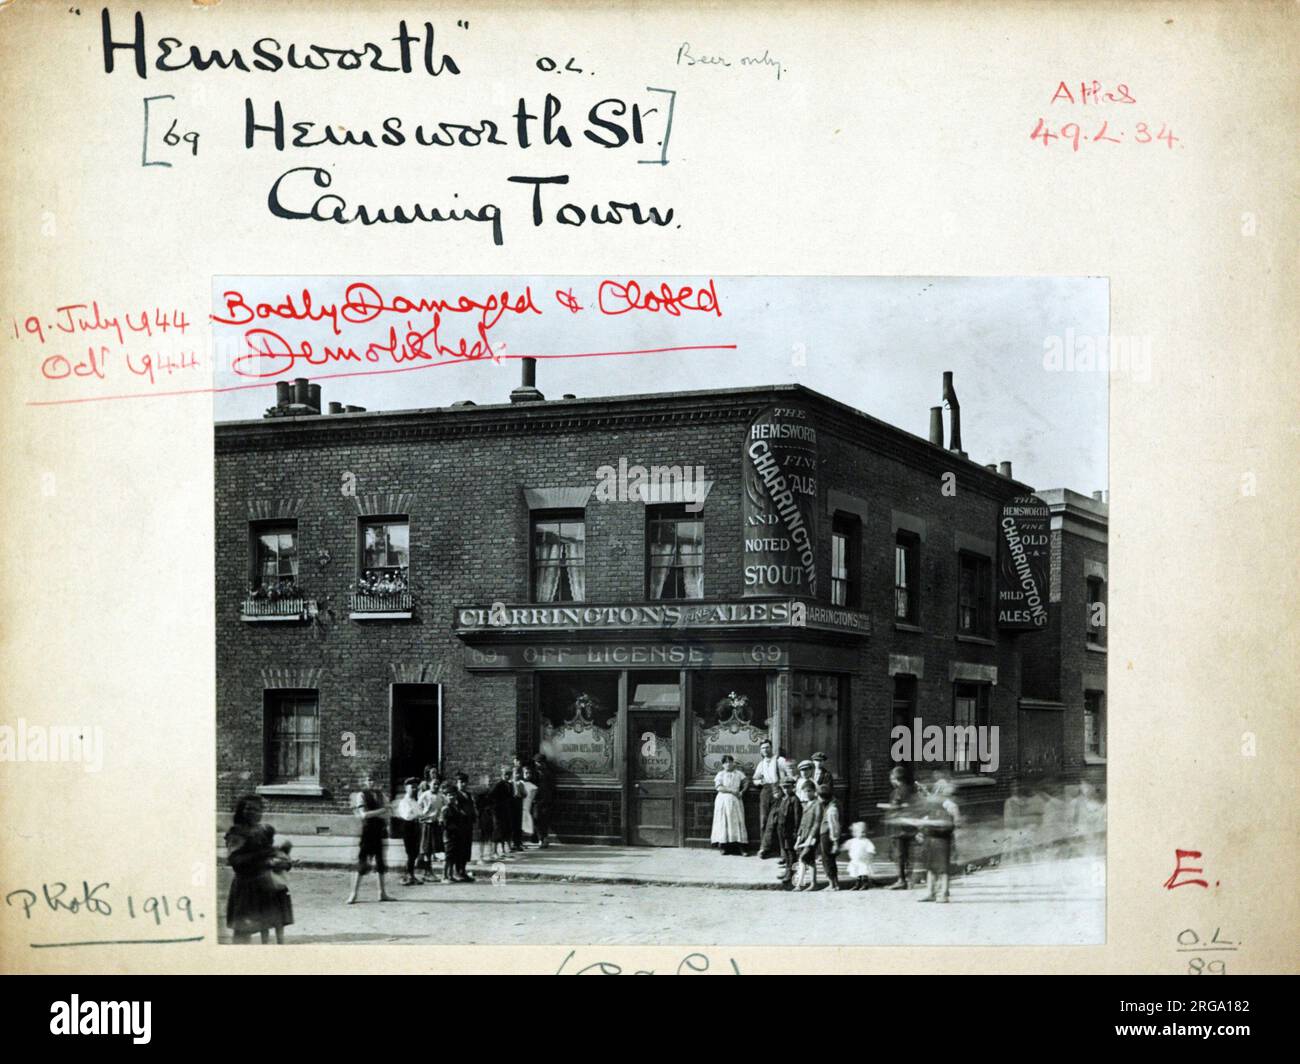 "Hemsworth" O.L. Beer only.
[69 Hemsworth St.]
Canning Town.
Atlas
49.L.34.
19. July 1944 Badly Damaged & Closed
Oct 1944 Demolished.
THE
HEMSWORTH
FINE
ALES
CHARRINGTONS
AND
NOTED
STOUT
THE
HEMSWORTH
FINE
OLD
&
CHARRINGTONS
MILD
ALES
CHARRINGTONS FINE ALES CHARRINGTONS
69 OFF LICENSE 69
CHARRINGTON ALES & STOUT
LICENSE
E.
Photo 1919.
O.L.
89
alamy
alamy
Image ID: 2RGA182
www.alamy.com